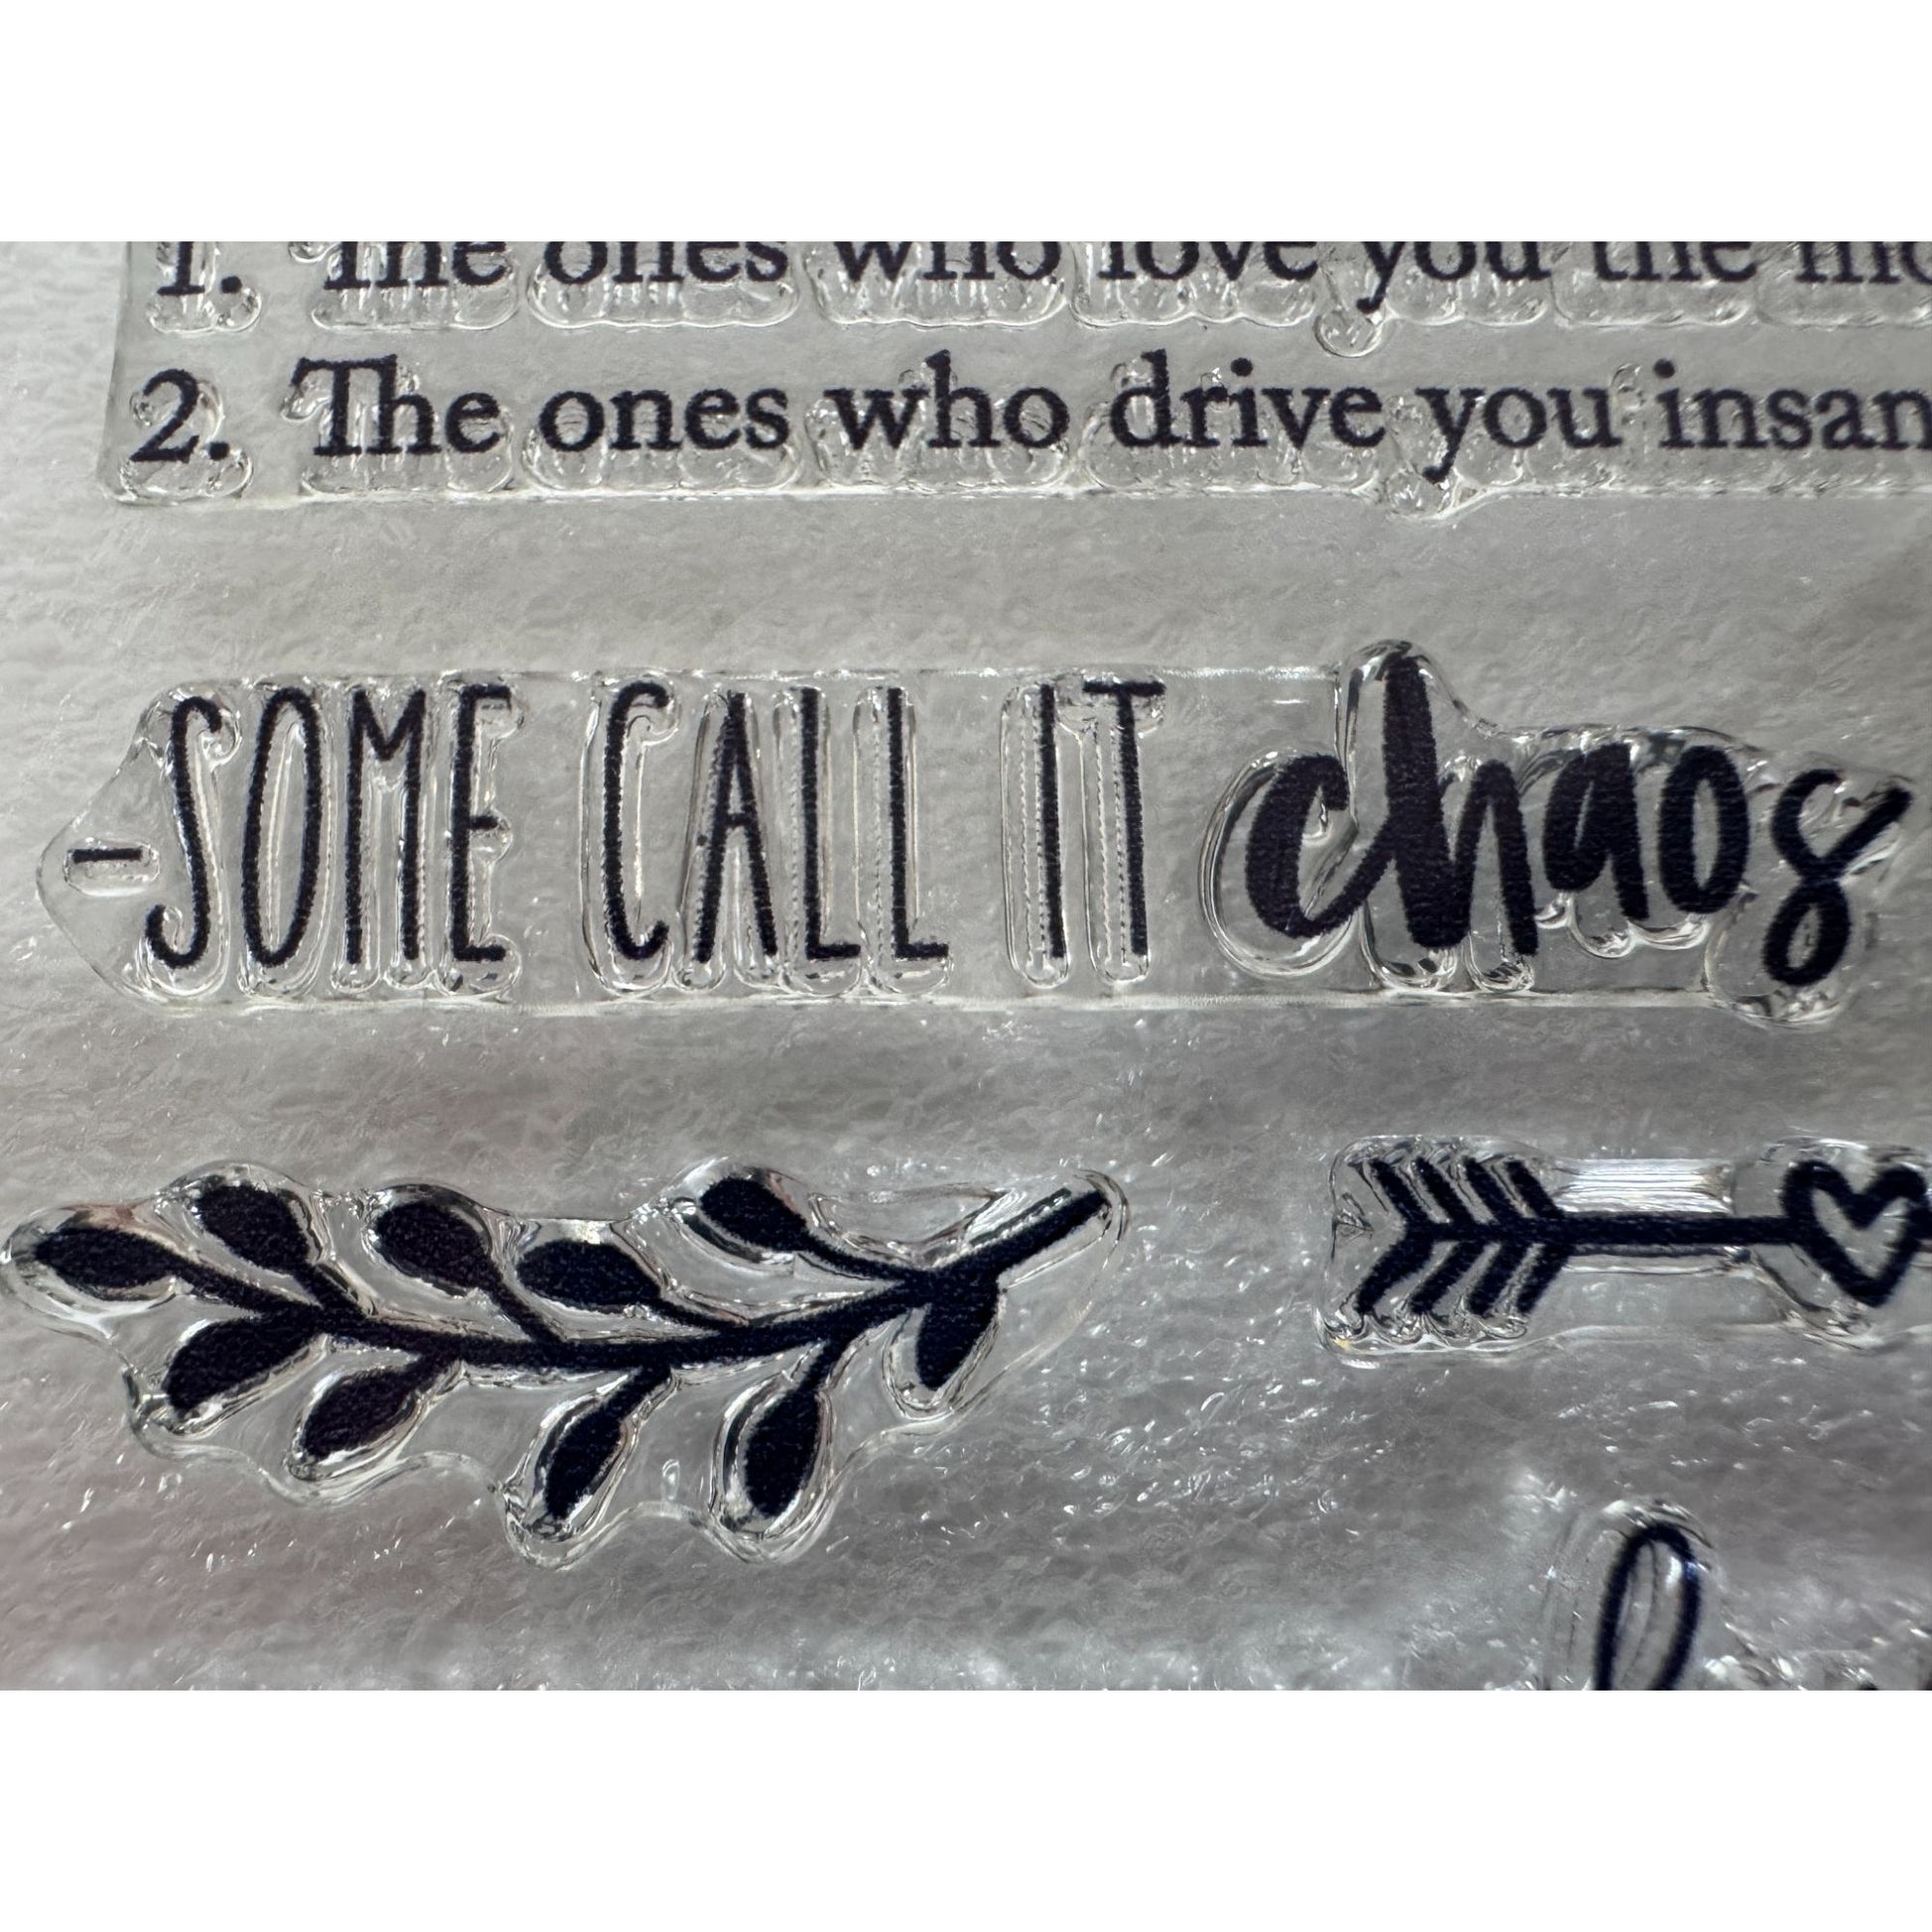 1. The ones who love you the
2. The ones who drive you
-SOME CALL IT chaos